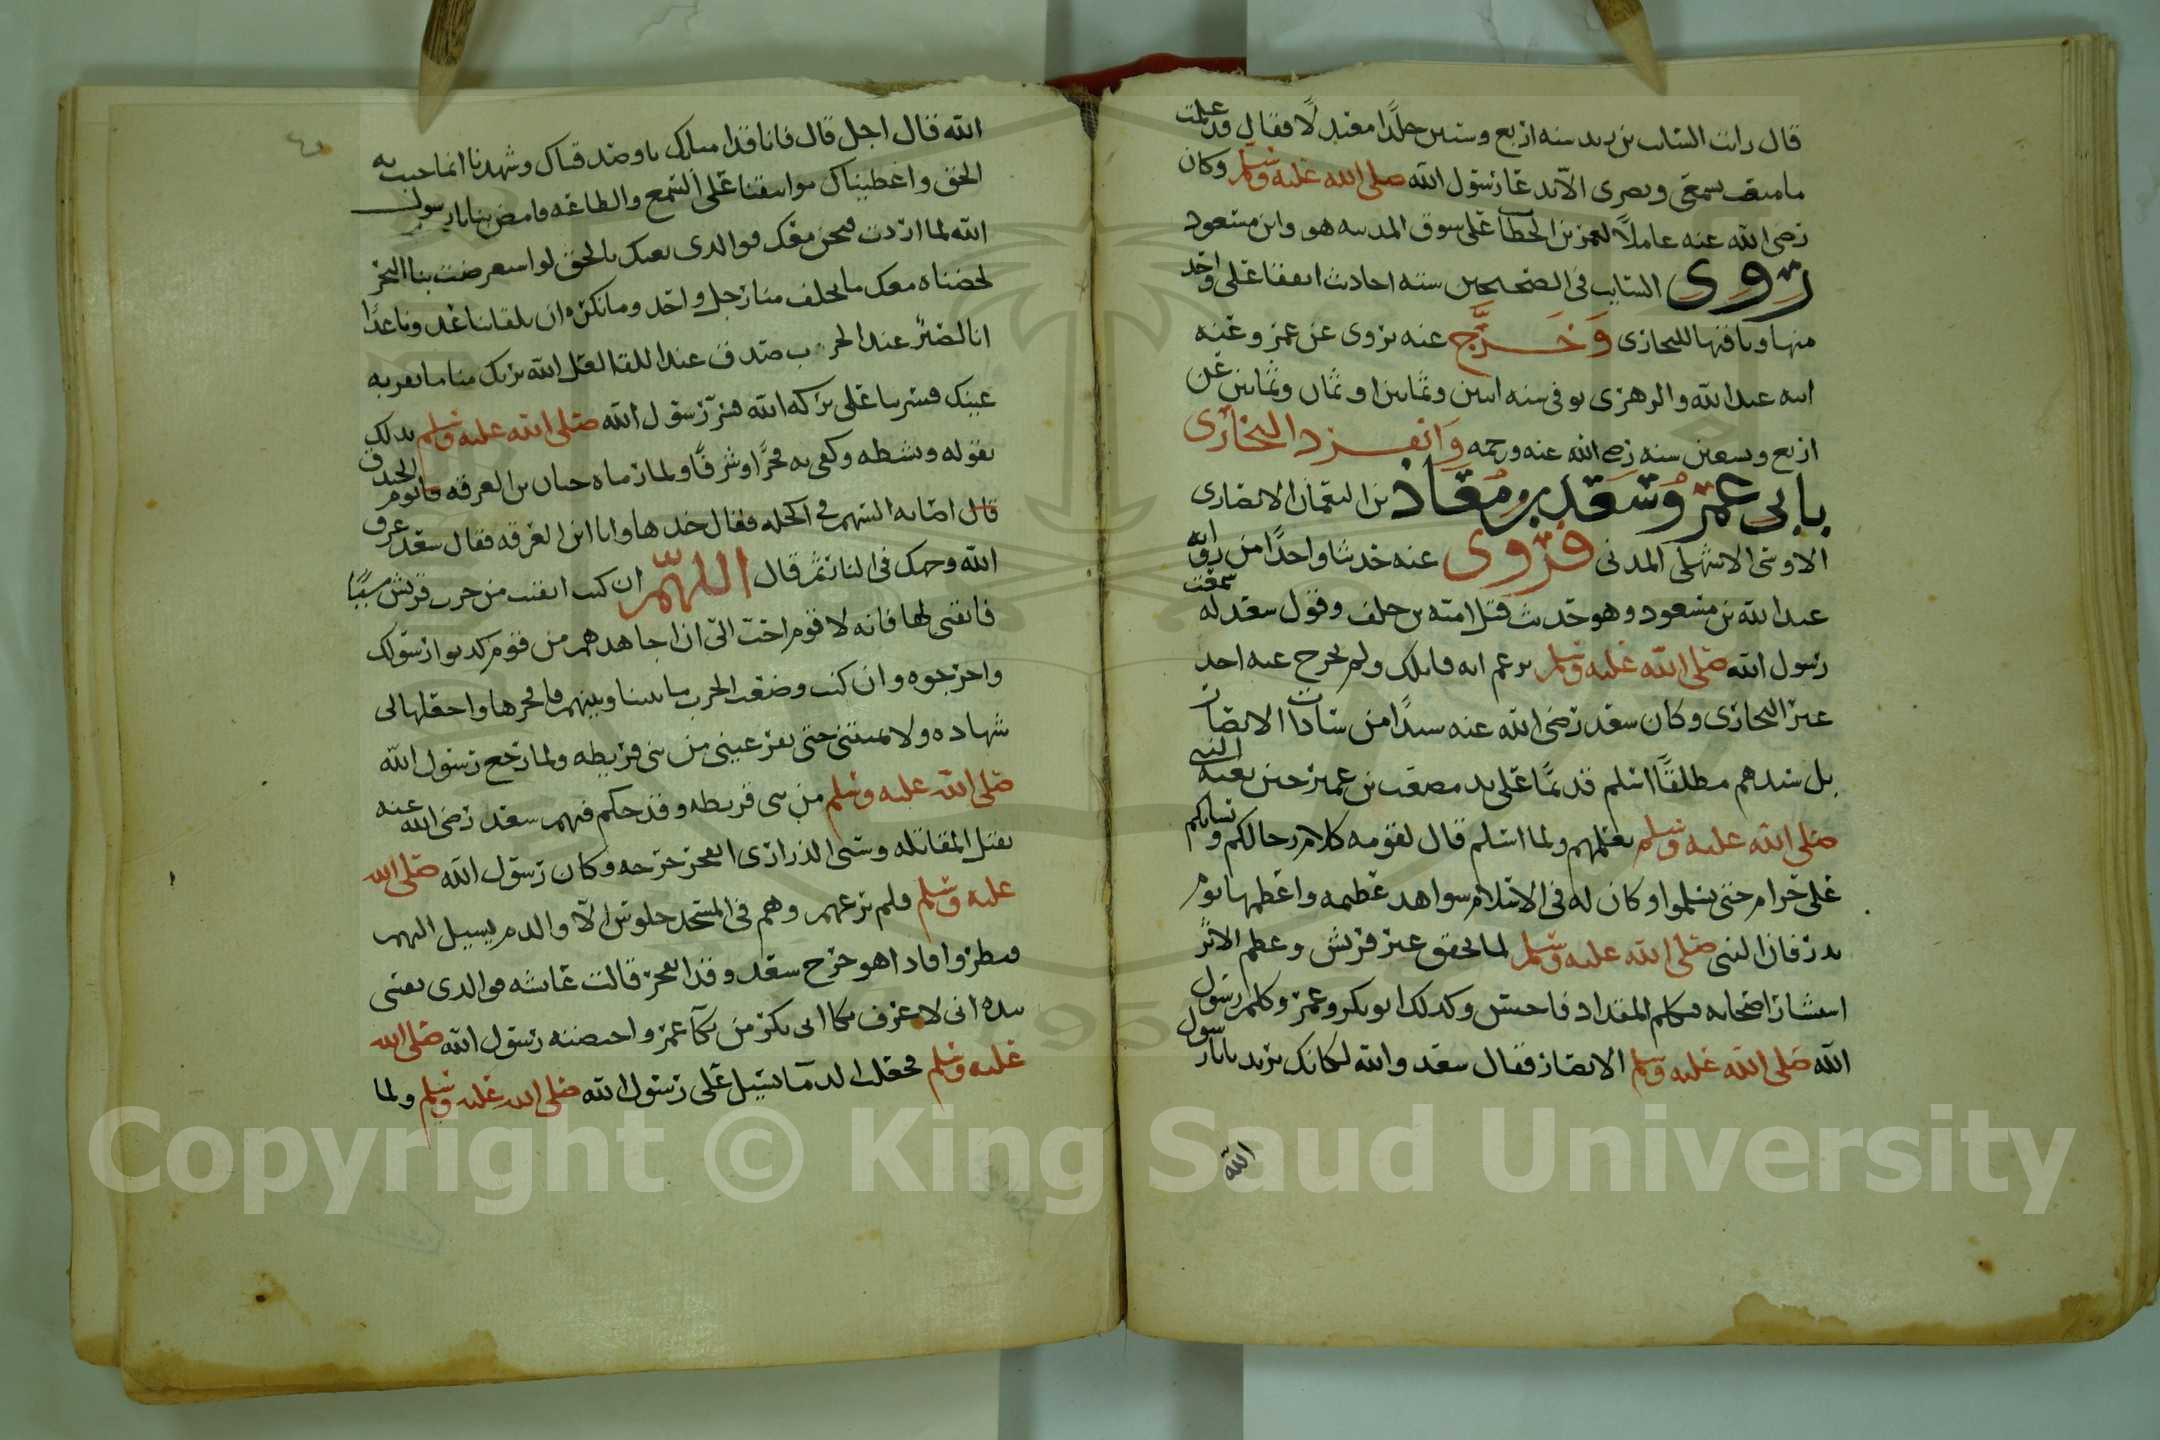 قال رايت السايب بن يزيد سنه اربع وستين جلدا معتدلا فقال قد علمت
ما متعت بسمعى وبصرى الا بدعا رسول الله صلى الله عليه وسلم وكان
رضى الله عنه عاملا لعمر بن الخطاب على سوق المدينه هو وابن مسعود
روى السايب فى الصحيحين سته احاديث اتفقا على واحد
منها وباقيها للبخارى وخرج عنه يروى عن عمر وعنه
ابنه عبد الله والزهرى توفى سنه اثنين وثمانين او ثمان وثمانين عن
اربع وتسعين سنه رضى الله عنه ورحمه وانفرد البخارى
بابى عمرو سعد بن معاذ بن النعمان الانصارى
الاوسى الاشهلى المدنى فروى عنه حديثا واحدا من روايه
عبد الله بن مسعود وهو حديث قتل اميه بن خلف وقول سعد له سمعت
رسول الله صلى الله عليه وسلم يزعم انه قاتلك ولم يخرج عنه احد
غير البخارى وكان سعد رضى الله عنه سيدا من سادات الانصار
بل سيدهم مطلقا اسلم قديما على يد مصعب بن عمير حين بعثه النبى
صلى الله عليه وسلم يعلمهم ولما اسلم قال لقومه كلام رجالكم ونسايكم
على حرام حتى تسلموا وكان له فى الاسلام شواهد عظيمه واعظمها يوم
بدر فان النبى صلى الله عليه وسلم لما تحقق عير قريش وعظم الامر
استشار اصحابه فتكلم المقداد فاحسن وكذلك ابو بكر وعمر وكلم رسول
الله صلى الله عليه وسلم الانصار فقال سعد والله لكانك تريدنا يا رسول
الله
الله قال اجل قال فانا قد امنا بك يا وصدقناك وشهدنا انما جيت به
الحق واعطيناك مواثيقنا على السمع والطاعه فامض بنا يا رسول
الله لما اردت فنحن معك فوالذى بعثك بالحق لو استعرضت بنا البحر
لخضناه معك ما يخلف منا رجل واحد وما نكره ان تلقا بنا عدونا غدا
انا لصبر عند الحرب صدق عند اللقا لعل الله يريك منا ما تقر به
عينك فسر بنا على بركه الله فسر رسول الله صلى الله عليه وسلم بذلك
بقوله ونشطه وكفى به فخرا وشرفا ولما رماه حبان بن العرقه يوم الخندق
قال اصابه السهم فى اكحله فقال خدها وانا ابن العرقه فقال سعد عرق
الله وجهك فى النار ثم قال اللهم ان كنت ابقيت من حرب قريش شيا
فابقنى لها فانه لا قوم احب الى ان اجاهدهم من قوم كذبوا رسولك
واخرجوه وان كنت وضعت الحرب ما بيننا وبينهم فافجرها واجعلها لى
شهاده ولا تمتنى حتى تقر عينى من بنى قريظه ولما رجع رسول الله
صلى الله عليه وسلم من بنى قريظه وقد حكم فيهم سعد رضى الله عنه
بقتل المقاتله وسبى الذرارى انفجر جرحه وكان رسول الله صلى الله
عليه وسلم فلم يرعهم وهم فى المسجد جلوس الا والدم يسيل اليهم
فنظروا فاذا هو جرح سعد وقد انفجر قالت عايشه فوالذى نفسى
بيده انى لاعرف بكا ابى بكر من بكا عمر واحتضنه رسول الله صلى الله
عليه وسلم فجعلت الدما تسيل على رسول الله صلى الله عليه وسلم ولما
Copyright © King Saud University